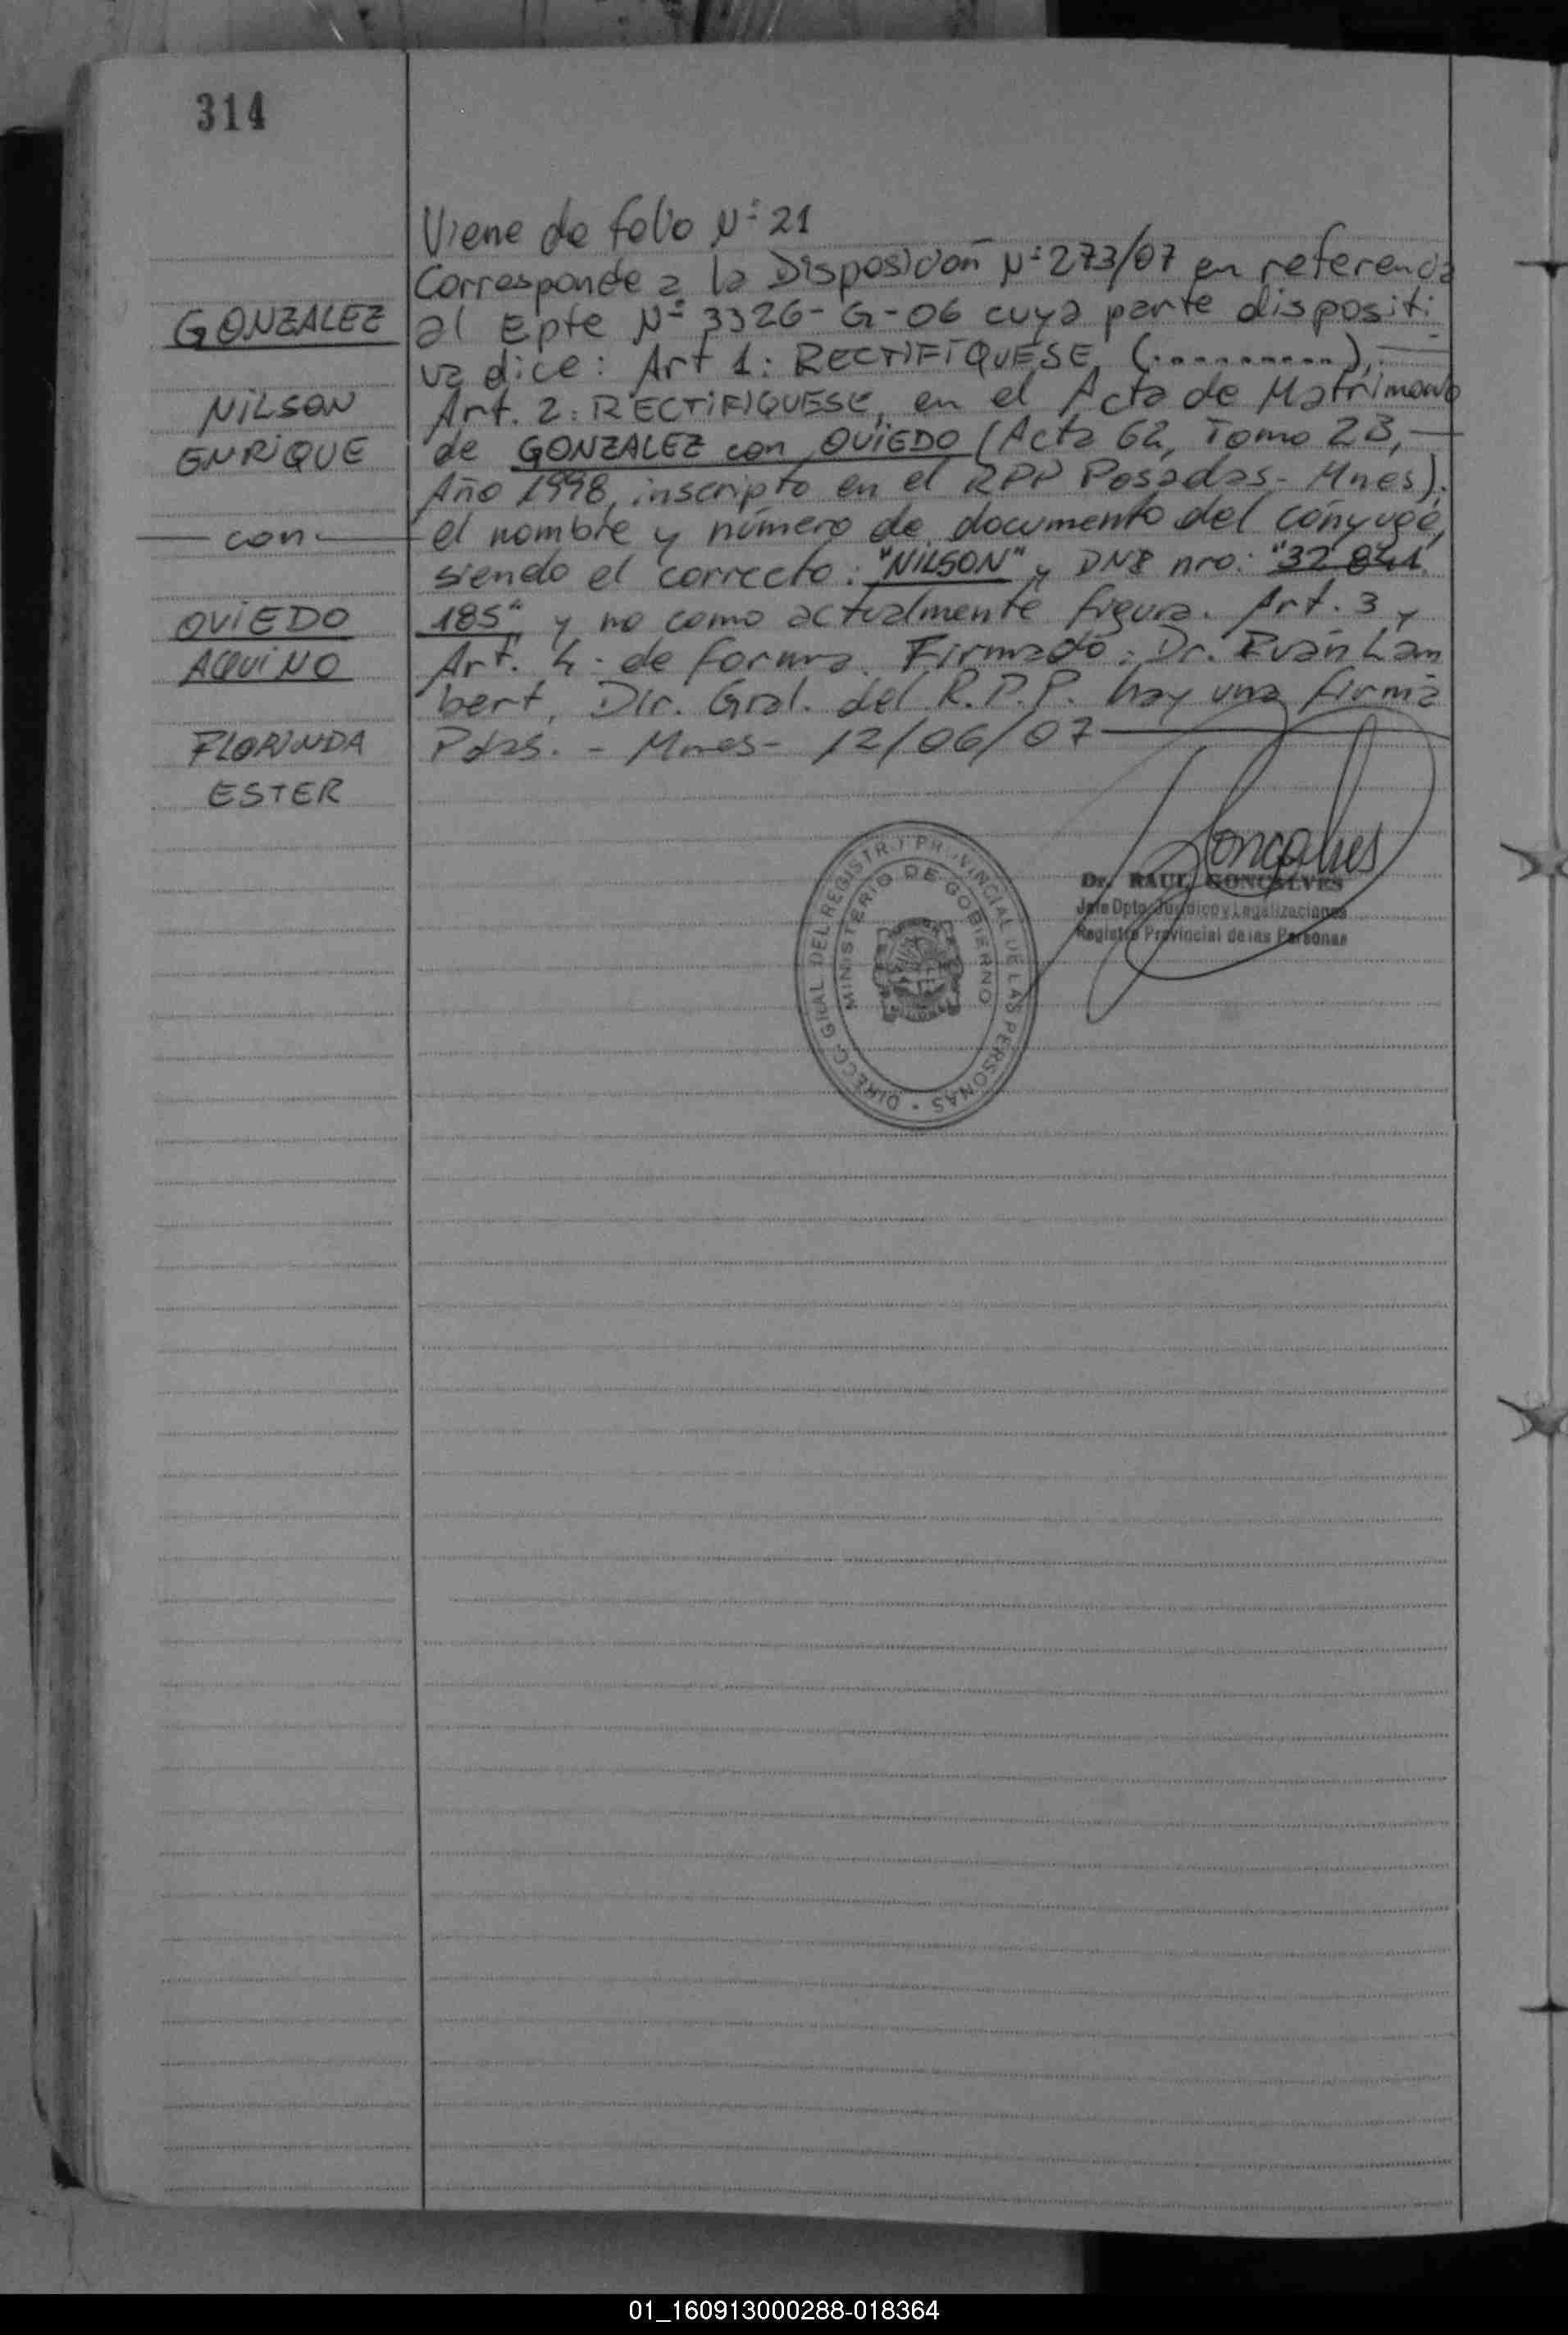 314
GONZALEZ
NILSON
ENRIQUE
con
OVIEDO
AQUINO
FLORINDA
ESTER
Viene de folio Nº 21
Corresponde a la Disposición Nº 273/07 en referencia
al Epte Nº 3326-G-06 cuya parte dispositi
va dice: Art 1: RECTIFIQUESE (..........),
Art. 2: RECTIFIQUESE, en el Acta de Matrimonio
de GONZALEZ con OVIEDO (Acta 62, Tomo 2B,
Año 1998, inscripto en el RPP Posadas - Mnes).
el nombre y número de documento del cónyuge,
siendo el correcto: "NILSON" y DNI nro: "32.841.
185" y no como actualmente figura. Art. 3 y
Art. 4: de forma. Firmado: Dr. Iván Lam
bert, Dir. Gral. del R.P.P. hay una firma
Pdas. - Mnes - 12/06/07
Goncalves
Dr. RAUL GONCALVES
Jefe Dpto. Jurídico y Legalizaciones
Registro Provincial de las Personas
DIRECC. GRAL. DEL REGISTRO PROVINCIAL DE LAS PERSONAS
MINISTERIO DE GOBIERNO
01_160913000288-018364